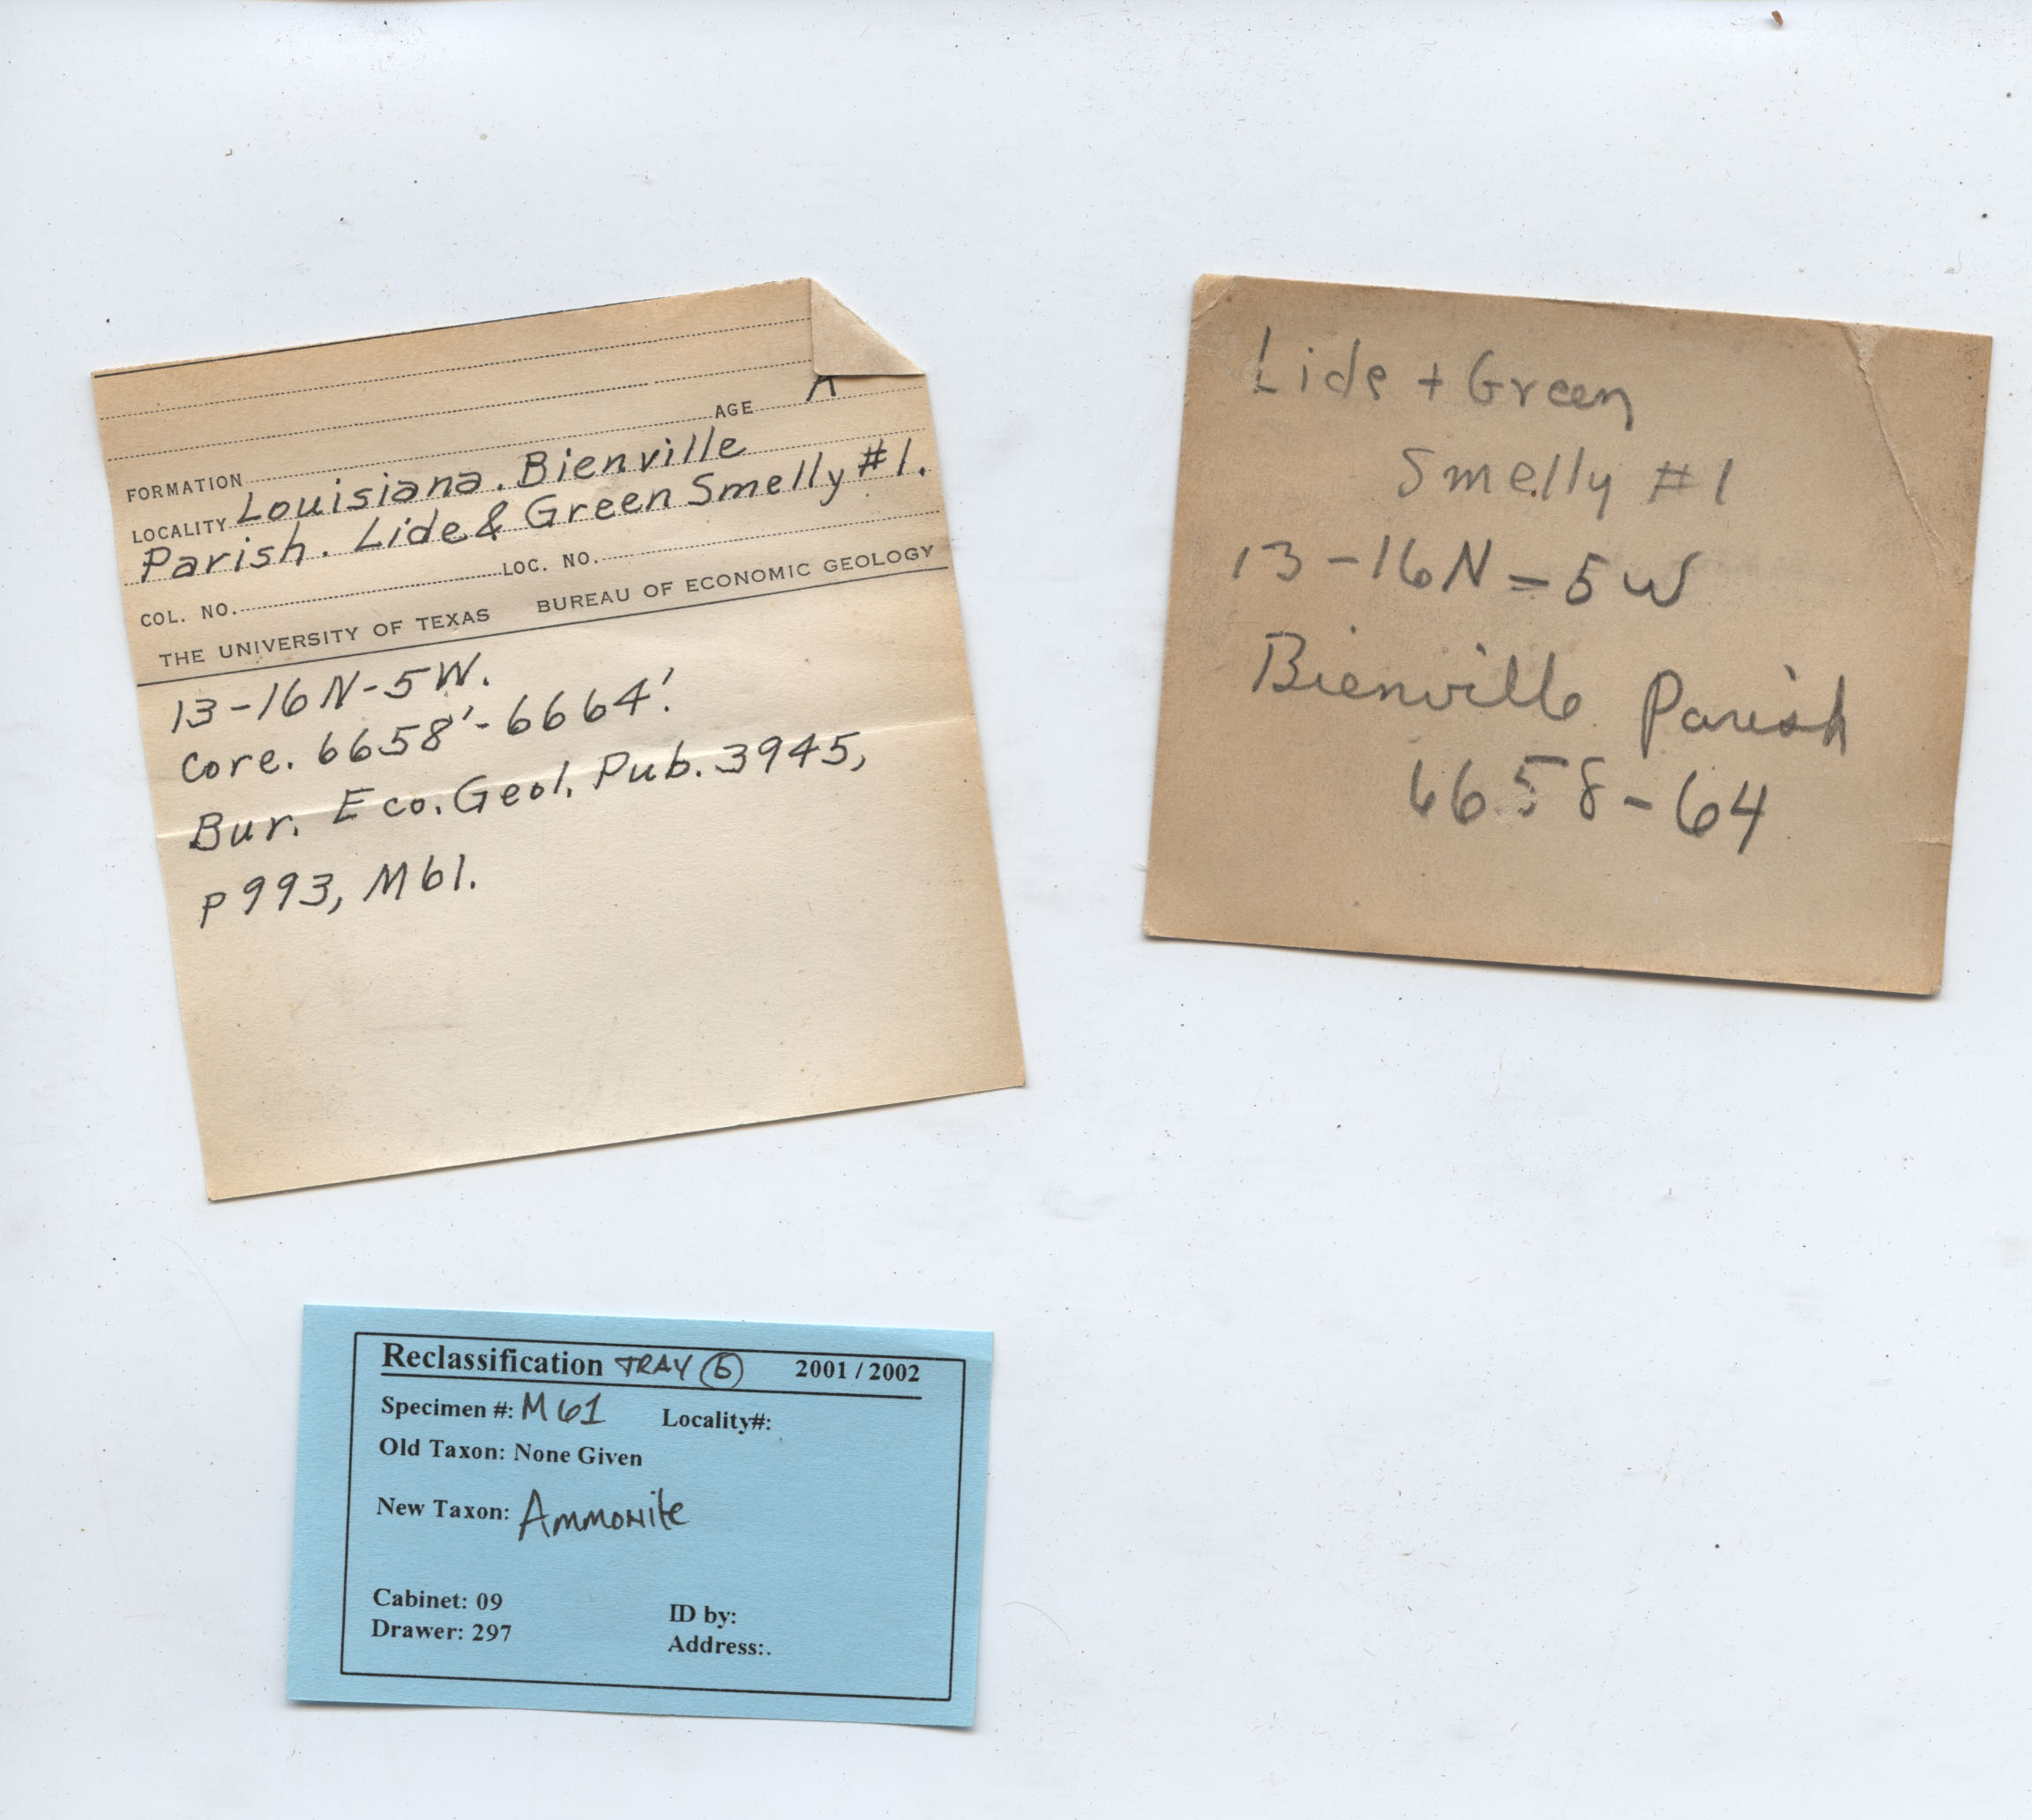 AGE
FORMATION
LOCALITY Louisiana. Bienville
Parish. Lide & Green Smelly #1.
COL. NO. LOC. NO.
THE UNIVERSITY OF TEXAS BUREAU OF ECONOMIC GEOLOGY
13-16N-5W.
Core. 6658'-6664'.
Bur. Eco. Geol. Pub. 3945,
P993, M61.
Lide + Green
Smelly #1
13-16N-5W
Bienville Parish
6658-64
Reclassification TRAY 6 2001 / 2002
Specimen #: M61 Locality#:
Old Taxon: None Given
New Taxon: Ammonite
Cabinet: 09 ID by:
Drawer: 297 Address:.